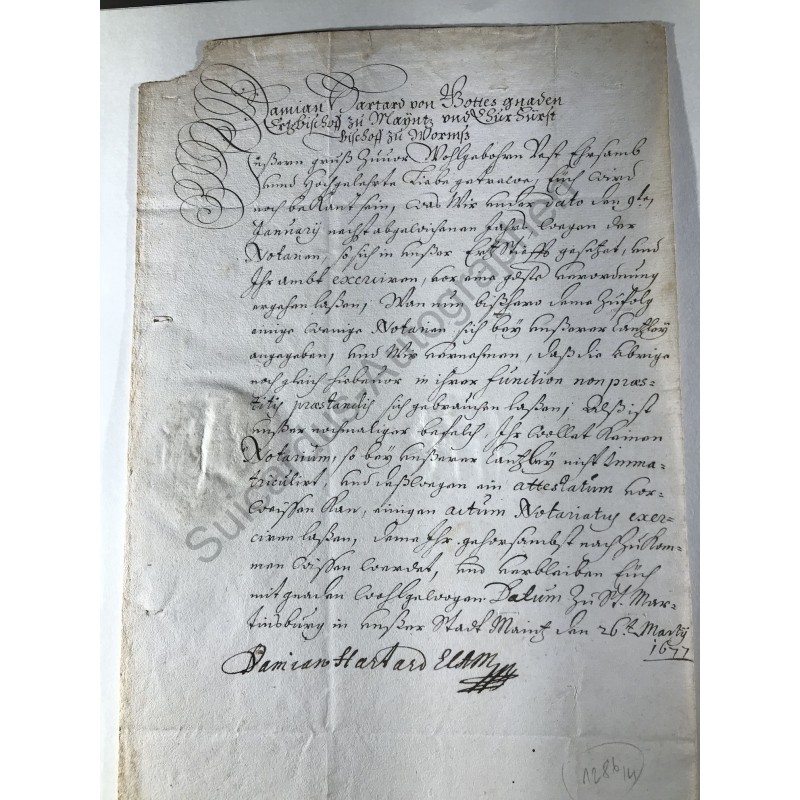 Damian Hartard von Gottes gnaden
Ertzbischoff zu Mayntz vnd Chur Fürst
Bischoff zu Wormbs
Vnßern gruß Zuuor Wohlgebohrn Vest Ehrsamb
vnnd Hochgelehrte Liebe getrewe, Euch wird
noch bekant sein, was Wir under dato den 9ten
January nechst abgewichenen Jahrs wegen der
Notarien, so sich in vnßer Ertz Stifft gesetzet, und
Ihr ambt exerciren, vor eine verordnung
ergehen laßen, Wan nun bißhero deme Zufolg
einige wenige Notarien sich bey vnßerer Cantzley
angegeben, und Wir vernehmen, daß die vbrige
noch gleich hiebeuor in ihrer function non præs-
titis præstandis sich gebrauchen laßen; Alß ist
vnßer nochmaliger befelch, Ihr wollet keinen
Notarium, so bey vnßerer Cantzley nicht Imma-
triculirt, und deßwegen ein attestatum vor-
weissen kan, einigen actum Notariatus exer-
ciren laßen, deme Ihr gehorsambst nach zu kom-
men wissen werdet, und verbleiben Euch
mit gnaden wohlgewogen. Datum Zu St. Mar-
tinsburg in vnßer Stadt Maintz den 26.t Marty
1677
Damian Hartard ECHM
128b/14
Surcamus-Autographen